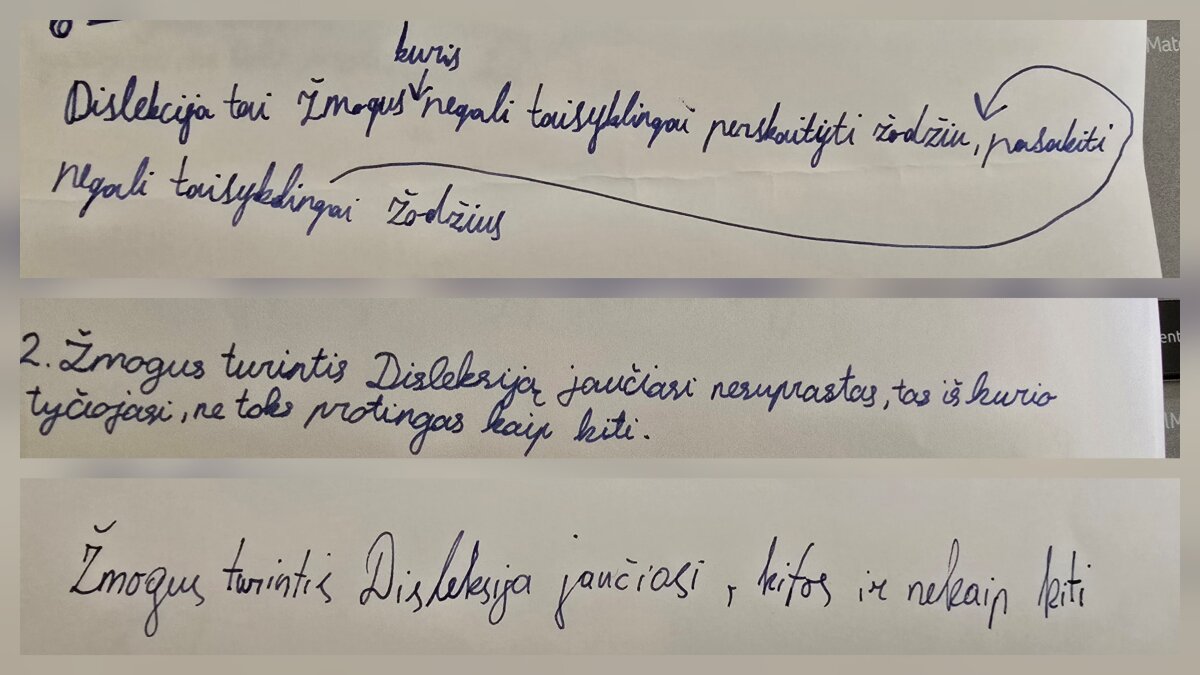 kuris
Dislekcija tai žmogus negali taisyklingai perskaityti žodžiu, pasakiti
negali taisyklingai žodžius
2. Žmogus turintis Disleksiją jaučiasi nesuprastas, tas iš kurio
tyčiojasi, ne toks protingas kaip kiti.
Žmogus turintis Disleksija jaučiasi, kitos ir nekaip kiti